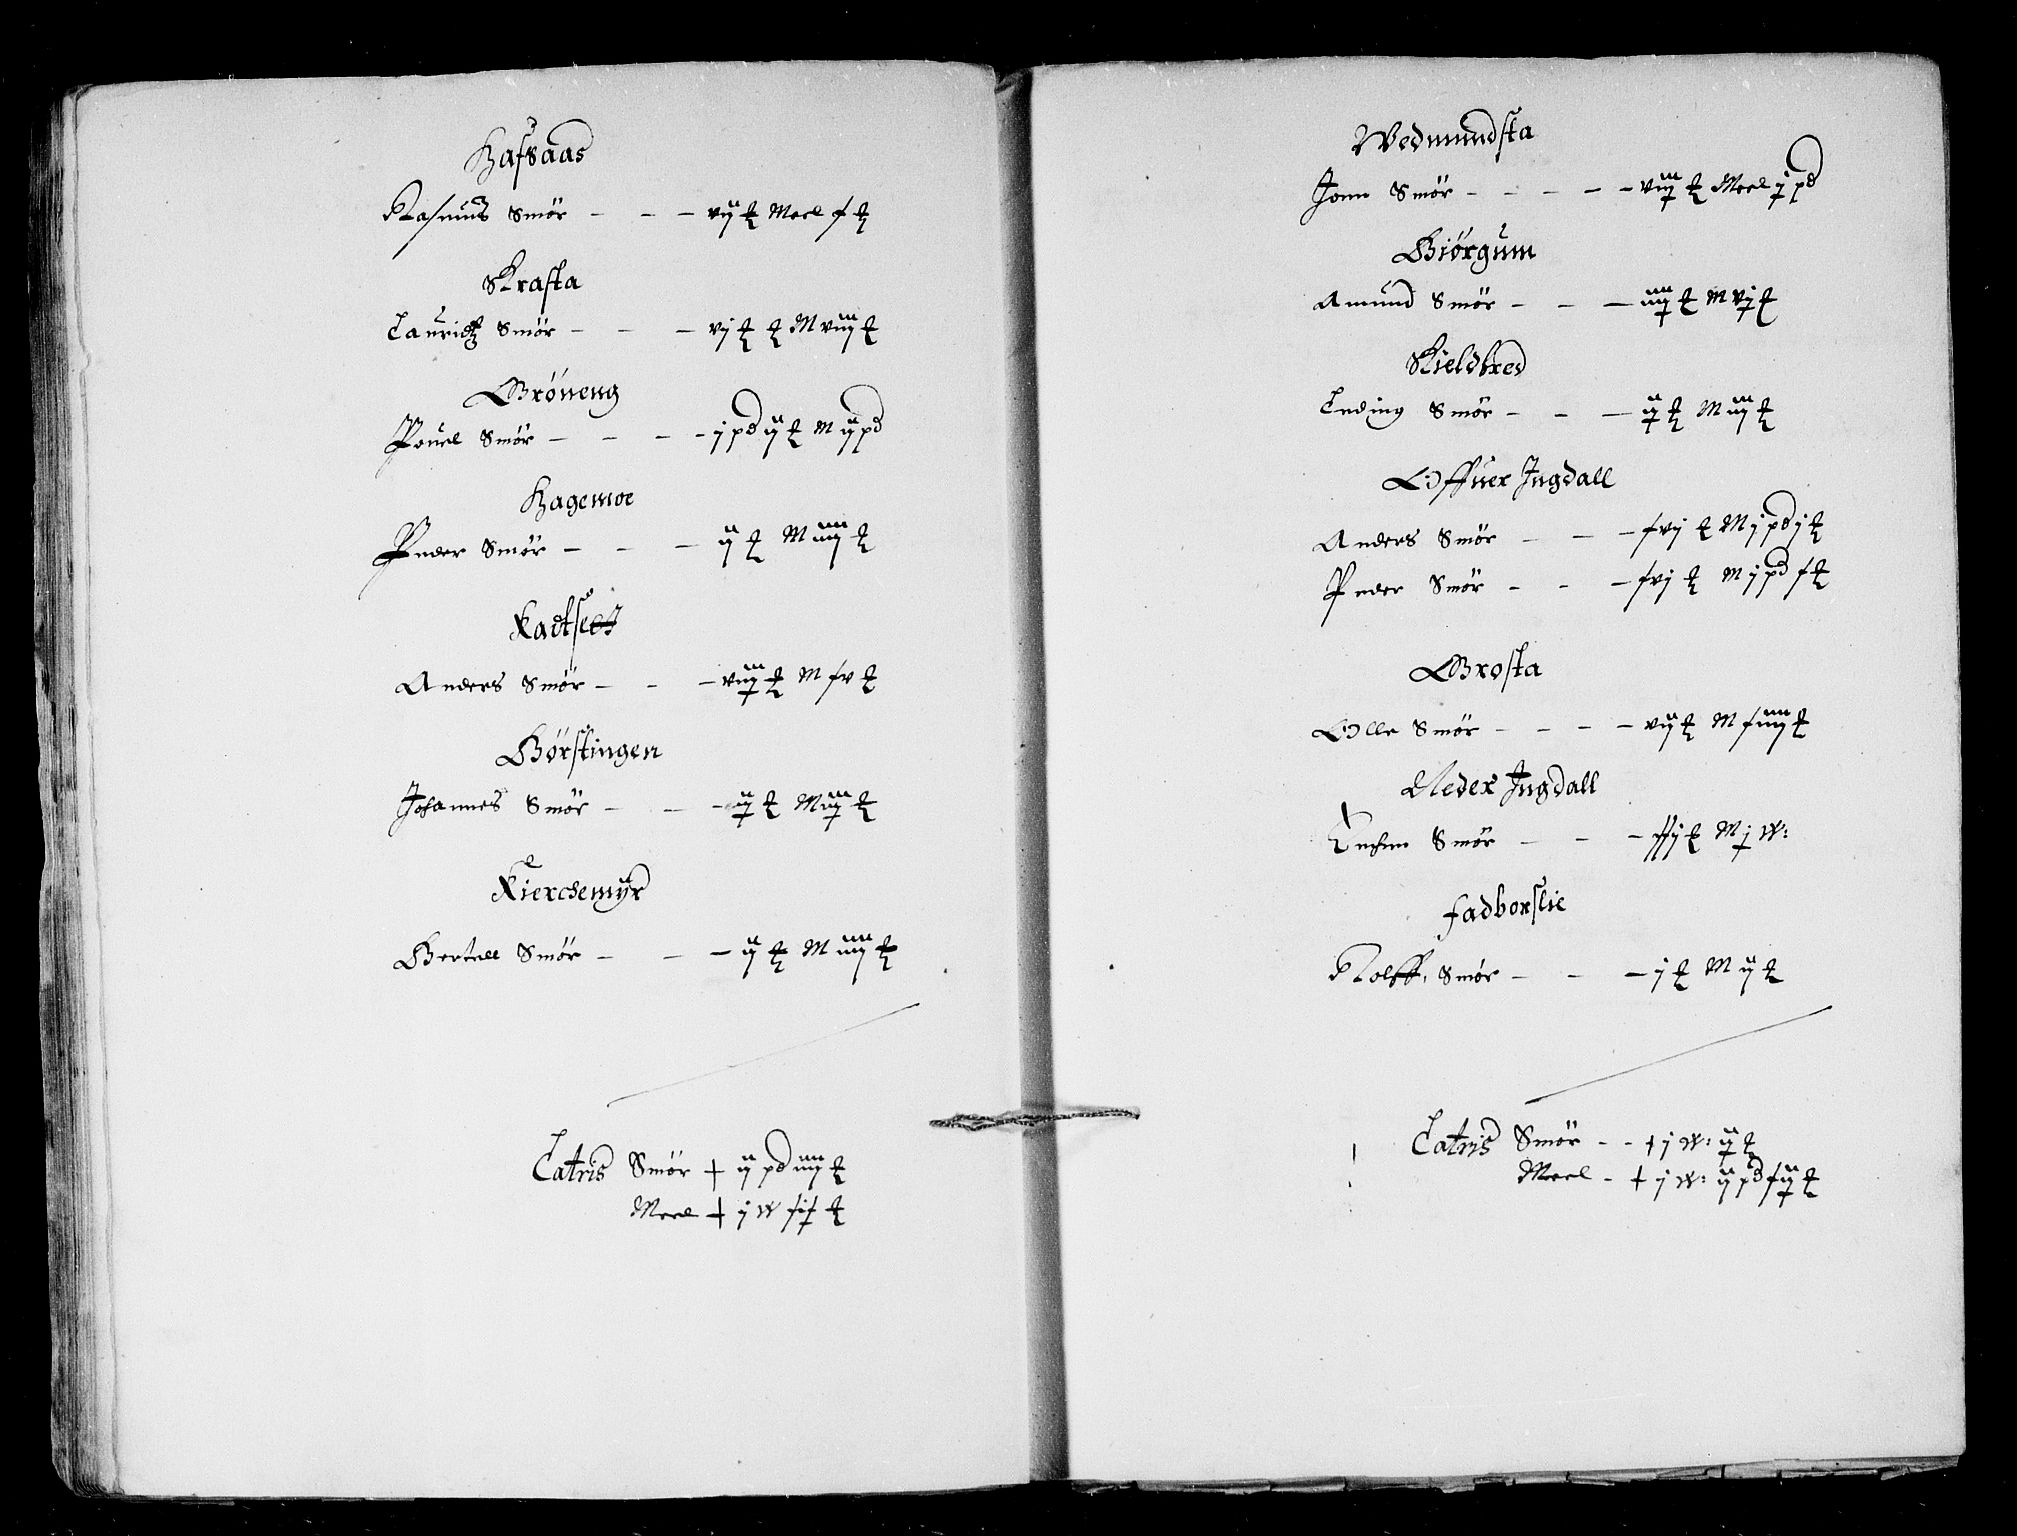 Hafsaas
Rasmus Smör - - - vij ℔ Meel ƒ ℔
Krasta
Lauridtz Smör - - - vj ℔ ℔ M viij ℔
Gröneng
Pouel Smör - - - - j pd ij ℔ M ij pd
Hagemoe
Peder Smör - - - ij ℔ M iiij ℔
Kadtseet
Anders Smör - - - viij ℔ M ƒv ℔
Börstingen
Johannes Smör - - - ij ℔ M iij ℔
Kierchemyr
Bertell Smör - - - ij ℔ M iiij ℔
Latris Smör + ij pd iiij ℔
Meel + j W ƒiƒ ℔
Wedmundsta
Jonn Smör - - - - - viij ℔ Meel j pd
Biörgum
Amund Smör - - - iiij ℔ M vj ℔
Skieldbred
Smör - - - ij ℔ M iij ℔
Offuer Ingdall
Anders Smör - - - ƒvj ℔ M j pd j ℔
Peder Smör - - - ƒvj ℔ M j pd ƒ ℔
Brosta
Olle Smör - - - - vij ℔ M ƒiiij ℔
Neder Ingdall
Smör - - - ƒƒj ℔ M j W:
Fadborslie
Rolff: Smör - - - j ℔ M ij ℔
Latris Smör - - + j W: ij ℔
Meel - + j W: ij pd ƒij ℔